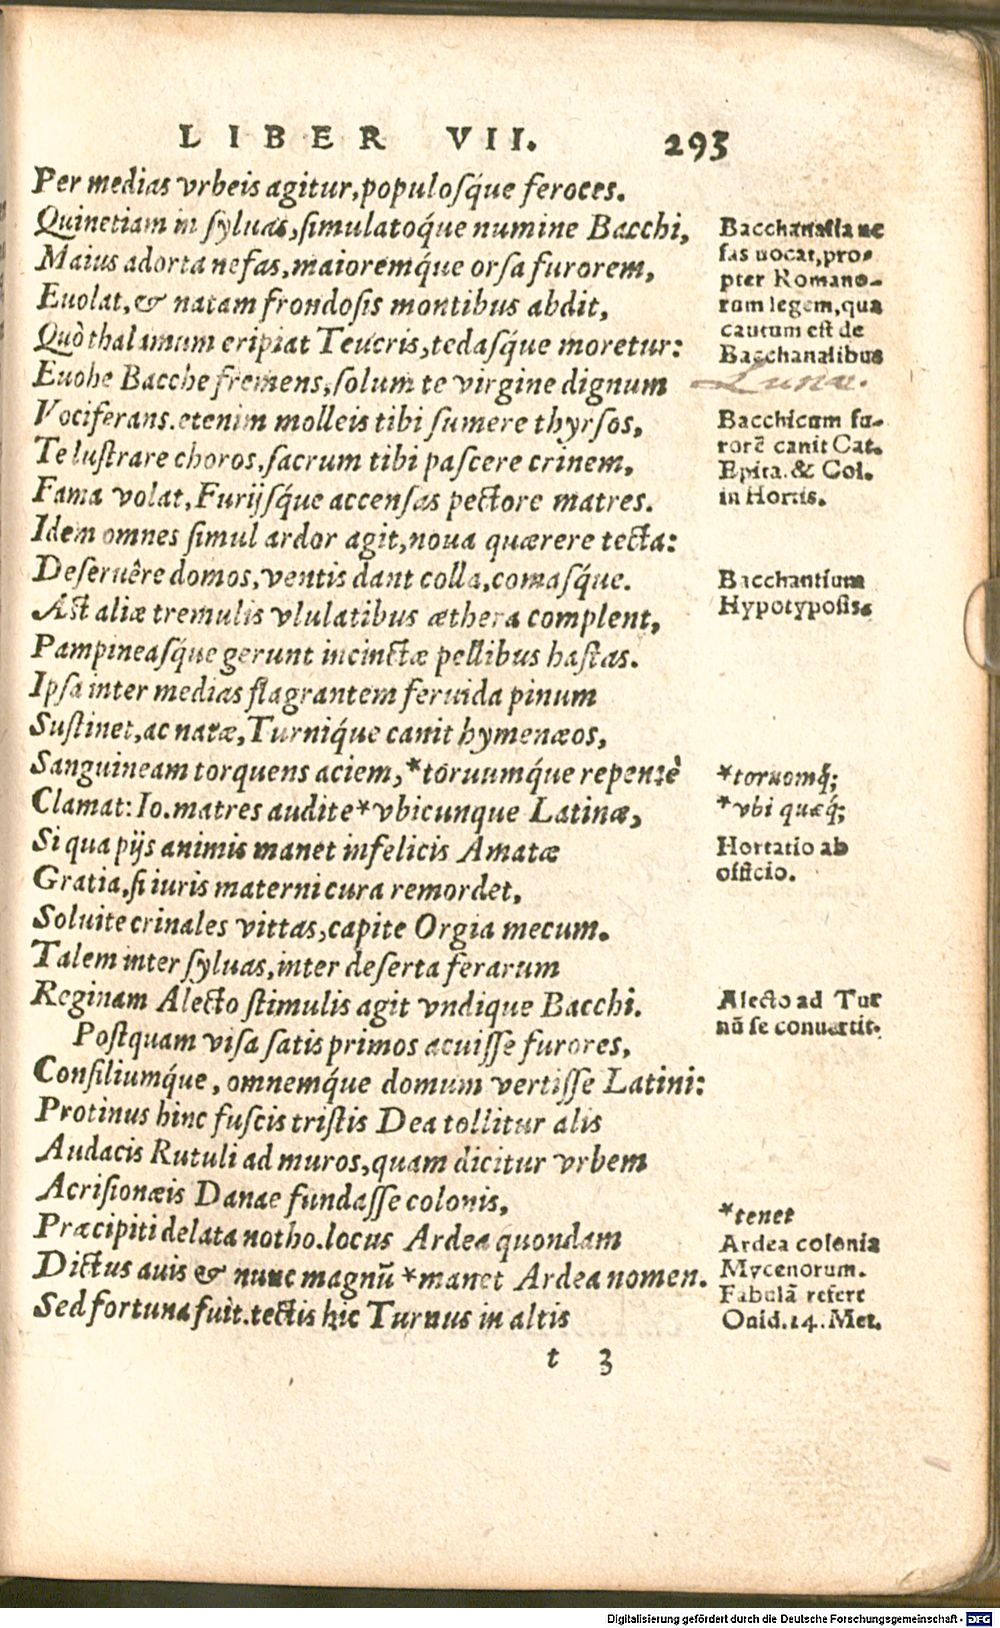 LIBER VII. 293
Per medias vrbeis agitur, populosq́ue feroces.
Quinetiam in syluas, simulatoq́ue numine Bacchi,
Maius adorta nefas, maioremq́ue orsa furorem,
Euolat, & natam frondosis montibus abdit,
Quò thalamum eripiat Teucris, tedasq́ue moretur:
Euohe Bacche fremens, solum te virgine dignum
Vociferans. etenim molleis tibi sumere thyrsos,
Te lustrare choros, sacrum tibi pascere crinem,
Fama volat, Furijsq́ue accensas pectore matres.
Idem omnes simul ardor agit, noua quærere tecta:
Deseruêre domos, ventis dant colla, comasq́ue.
Ast aliæ tremulis vlulatibus æthera complent,
Pampineasq́ue gerunt incinctæ pellibus hastas.
Ipsa inter medias flagrantem feruida pinum
Sustinet, ac natæ, Turniq́ue canit hymenæos,
Sanguineam torquens aciem, *toruumq́ue repentè
Clamat: Io. matres audite *vbicunque Latinæ,
Si qua pijs animis manet infelicis Amatæ
Gratia, si iuris materni cura remordet,
Soluite crinales vittas, capite Orgia mecum.
Talem inter syluas, inter deserta ferarum
Reginam Alecto stimulis agit vndique Bacchi.
Postquam visa satis primos acuisse furores,
Consiliumq́ue, omnemq́ue domum vertisse Latini:
Protinus hinc fuscis tristis Dea tollitur alis
Audacis Rutuli ad muros, quam dicitur vrbem
Acrisionæis Danae fundasse colonis,
Præcipiti delata notho. locus Ardea quondam
Dictus auis & nunc magnũ *manet Ardea nomen.
Sed fortuna fuit. tectis hic Turnus in altis
t 3
Bacchanalia ne
fas uocat, pro-
pter Romano-
rum legem, qua
cautum est de
Bacchanalibus
Lunæ.
Bacchicum fu-
rorẽ canit Cat.
Epita. & Col.
in Hortis.
Bacchantium
Hypotyposis.
*toruomq́;
*vbi quæq́;
Hortatio ab
officio.
Alecto ad Tur
nũ se conuertit.
*tenet
Ardea colonia
Mycenorum.
Fabulã refert
Ouid. 14. Met.
Digitalisierung gefördert durch die Deutsche Forschungsgemeinschaft - DFG